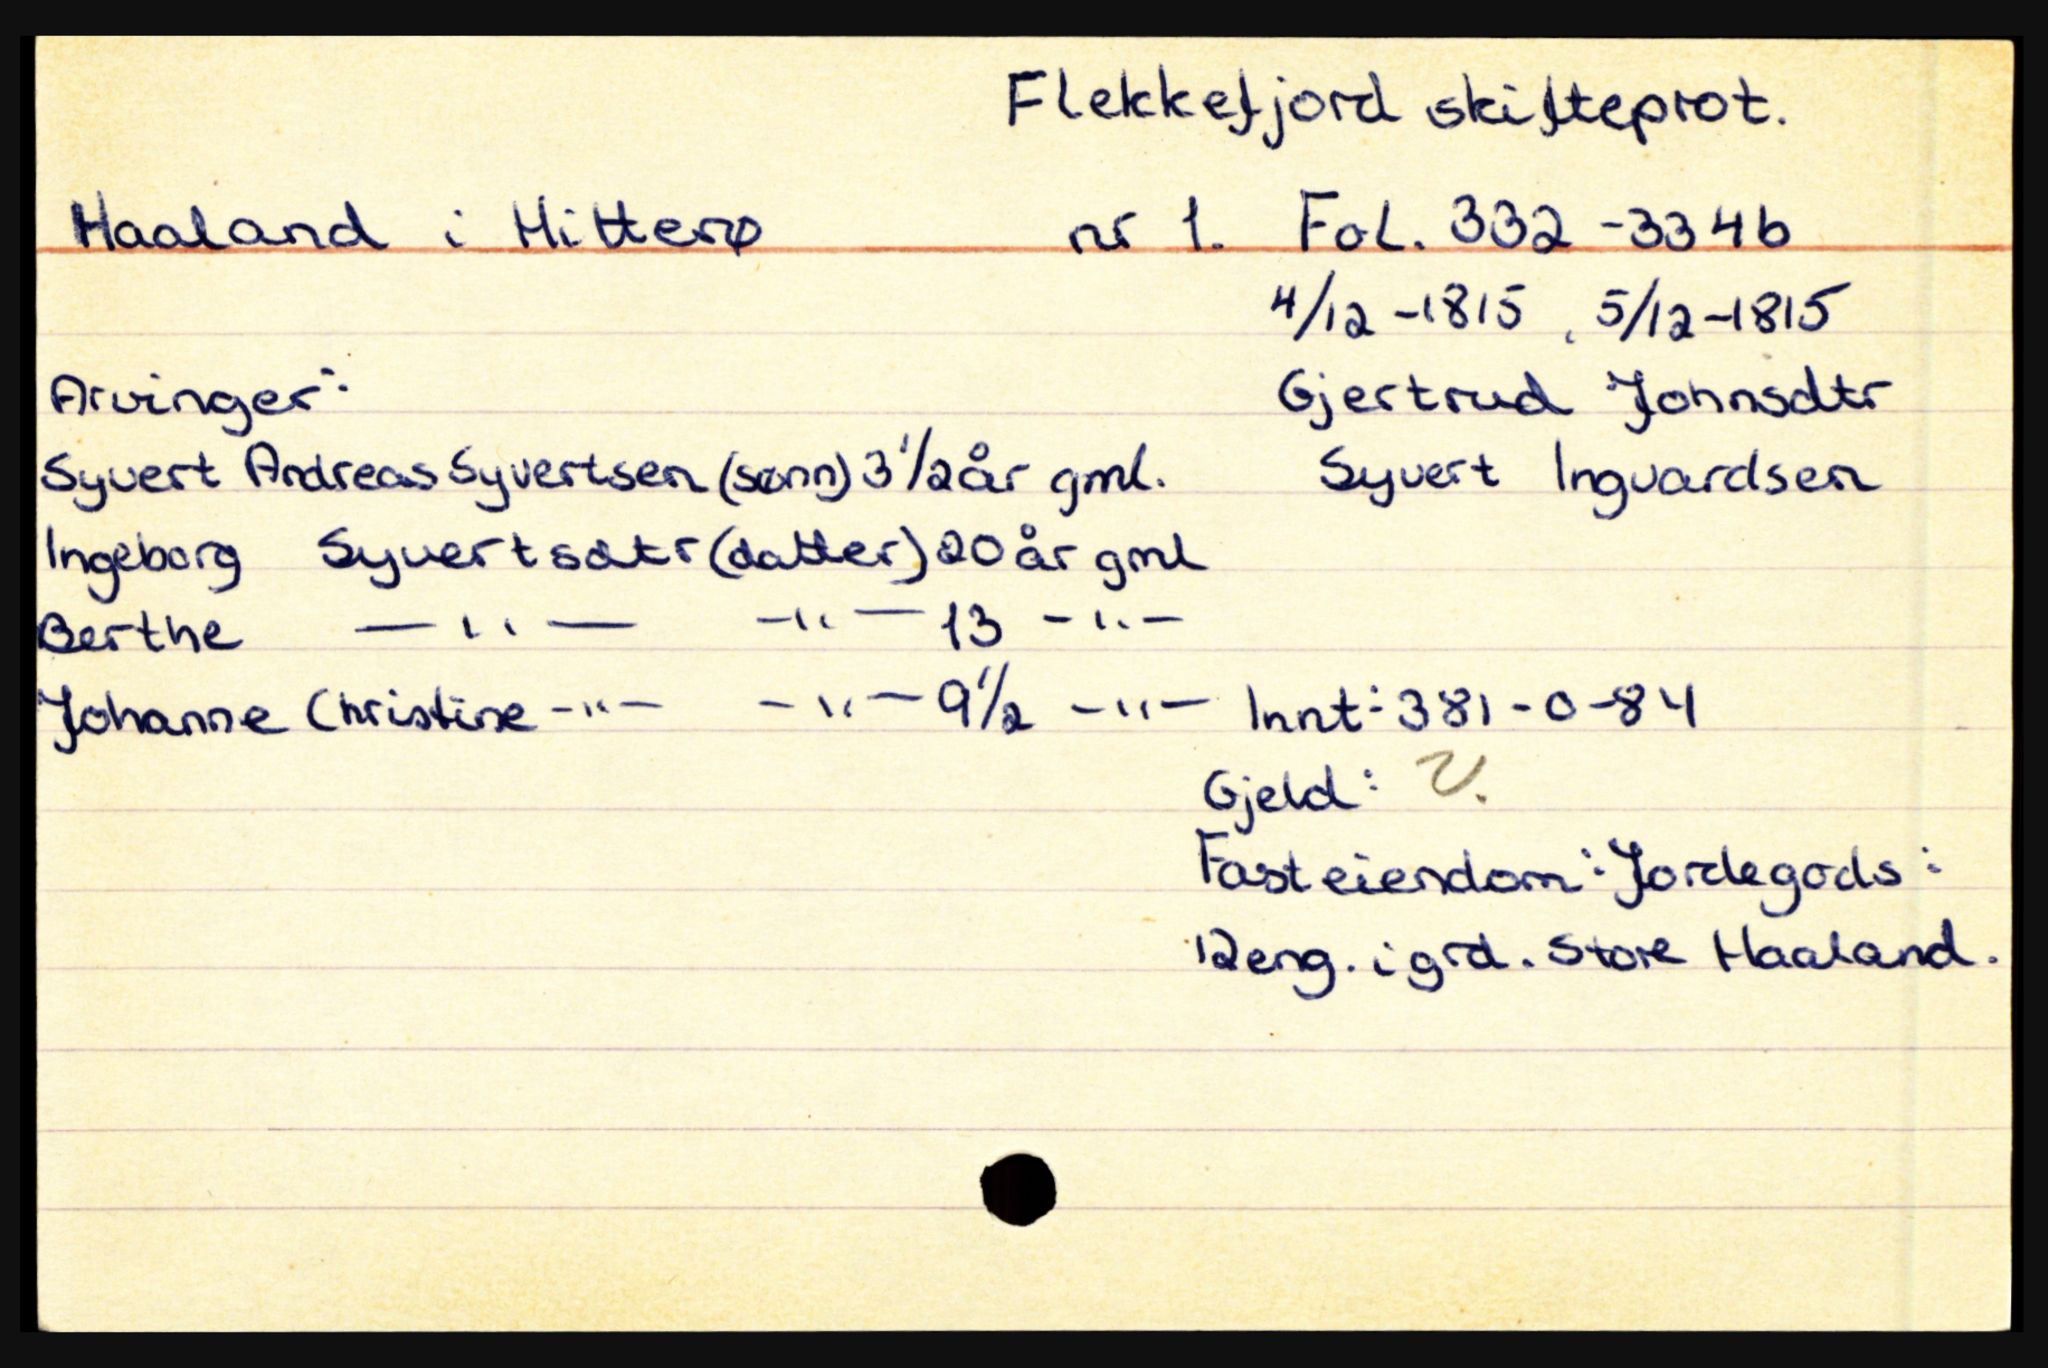 Flekkefjord skifteprot.
Haaland i Hitterø nr 1. Fol. 332-334b
4/12-1815, 5/12-1815
Arvinger: Gjertrud Johnsdtr
Syvert Andreas Syvertsen (sønn) 3 1/2 år gml. Syvert Ingvardsen
Ingeborg Syvertsdtr (datter) 20 år gml
Berthe —"— —"— 13 —"—
Johanne Christine —"— —"— 9 1/2 —"— Innt: 381-0-84
Gjeld:
Fast eiendom: Jordegods:
12 eng. i grd. Store Haaland.